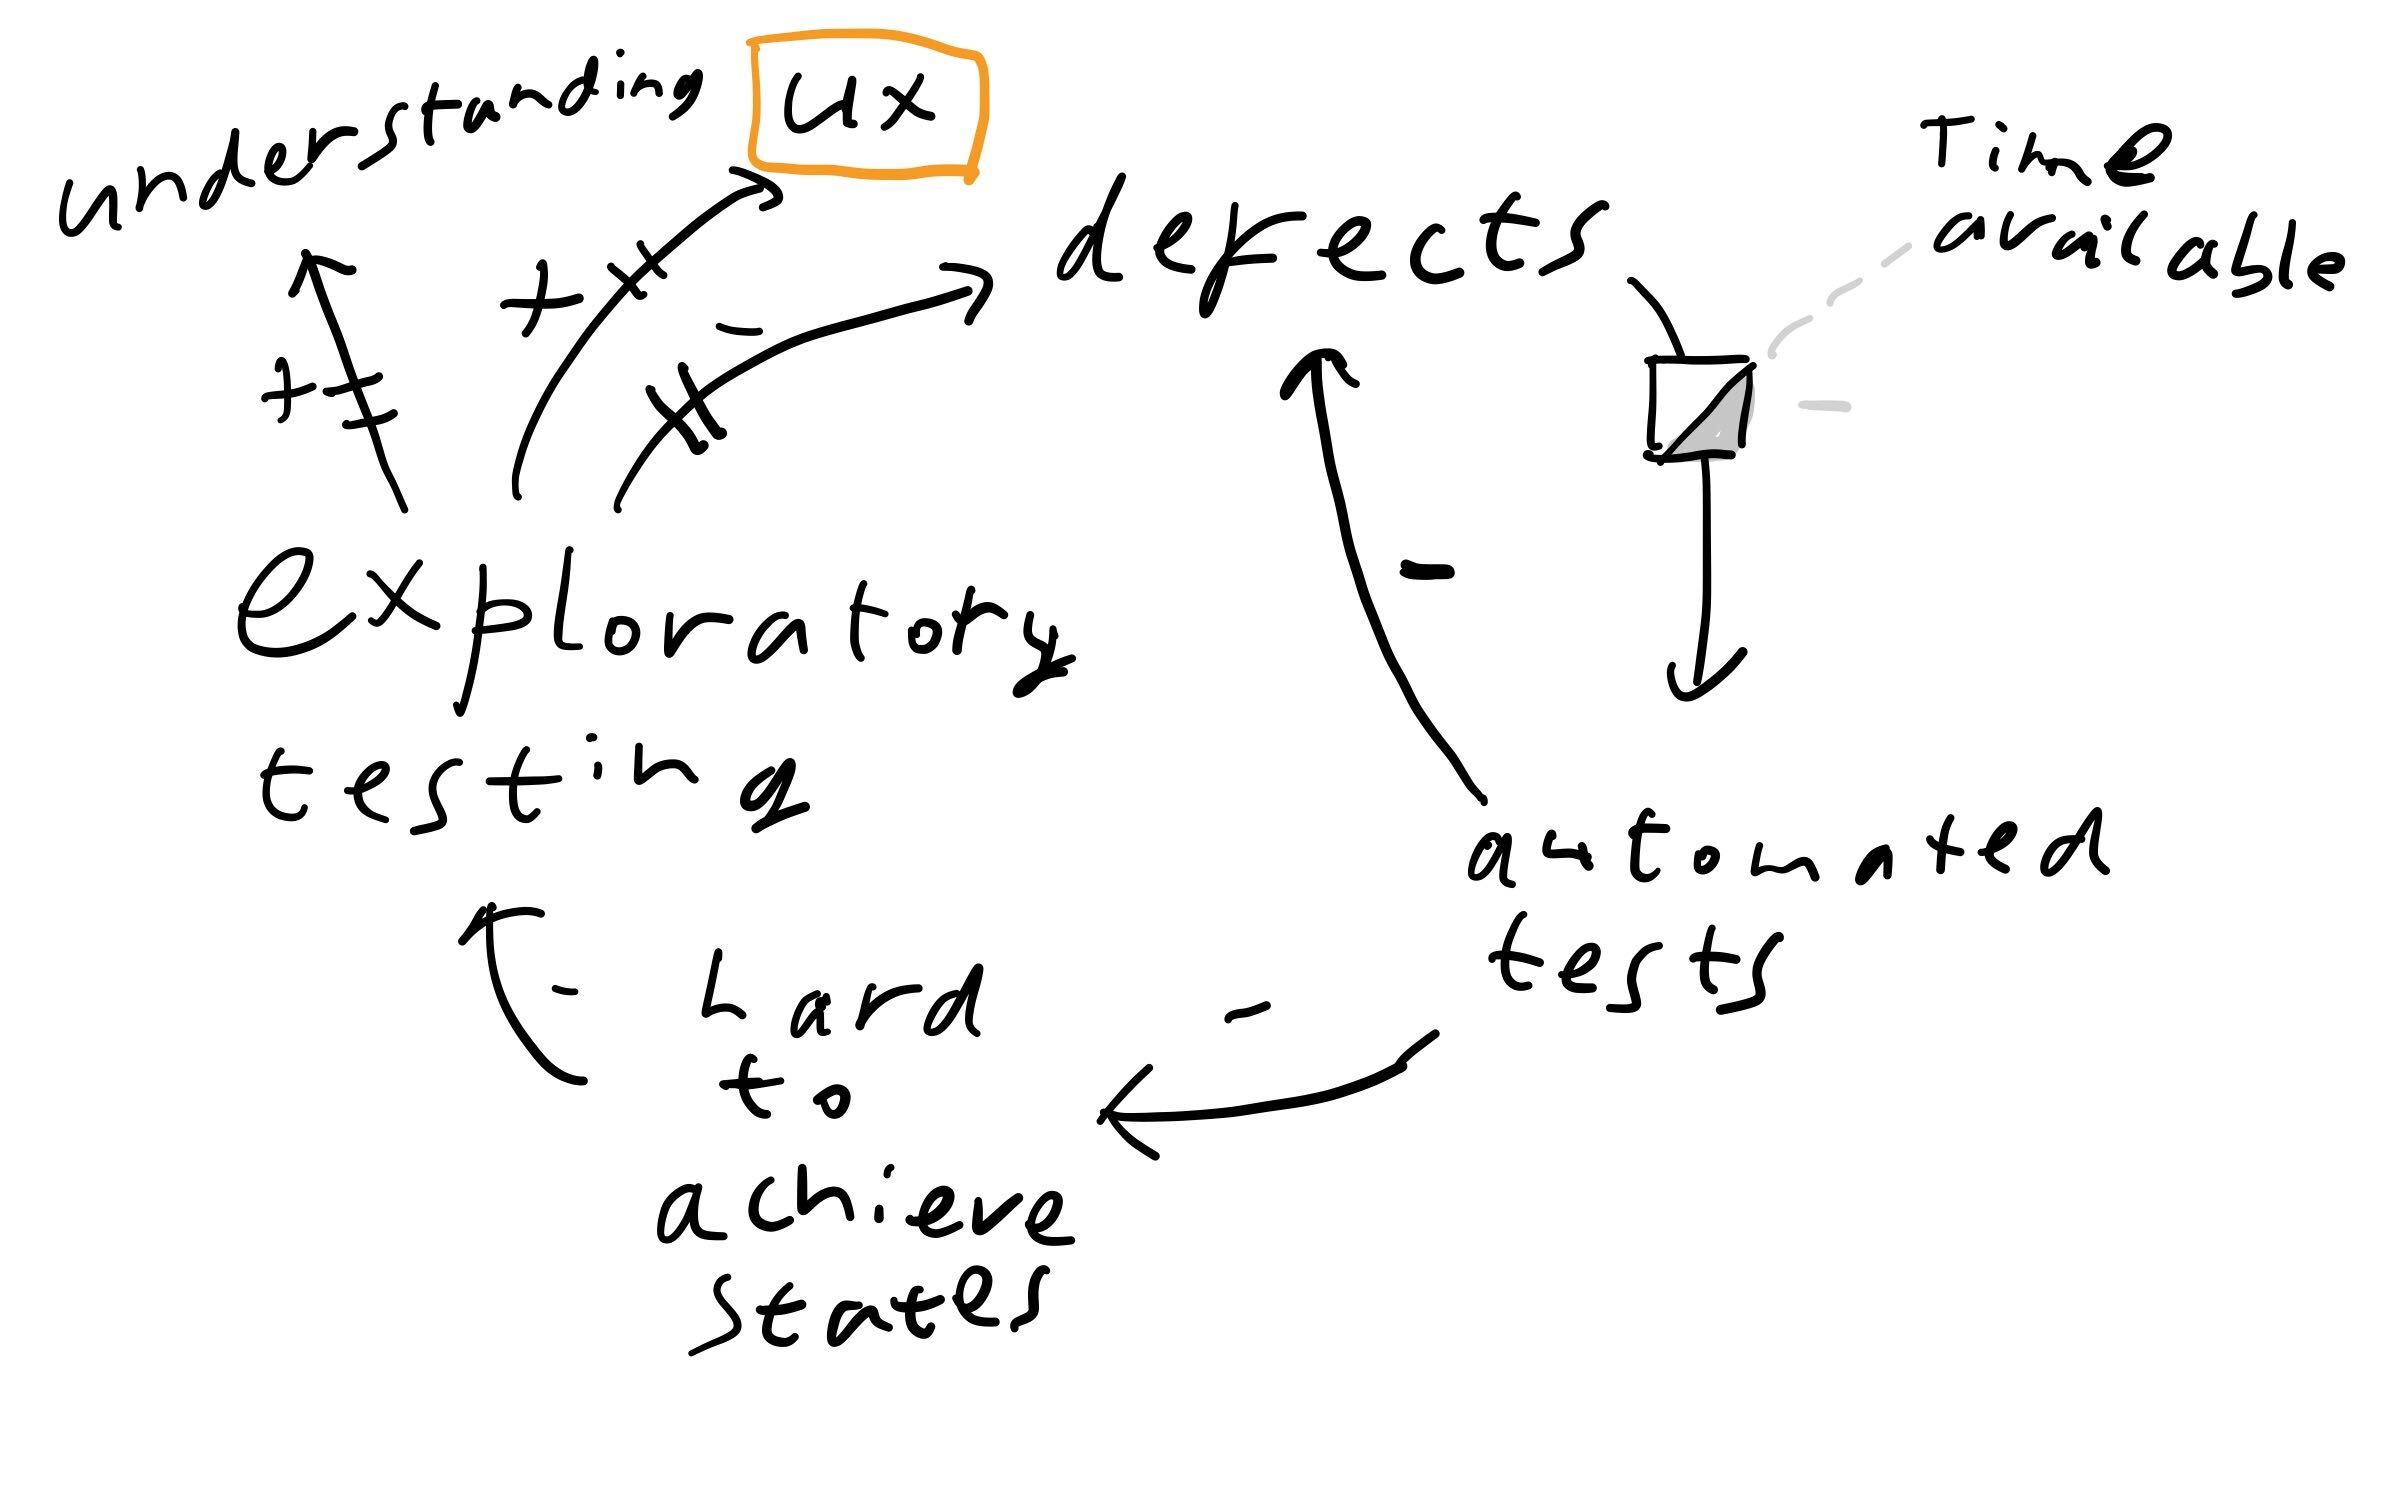 understanding
ux
defects
Time
available
+
+
-
-
-
exploratory
testing
automated
tests
-
-
hard
to
achieve
states